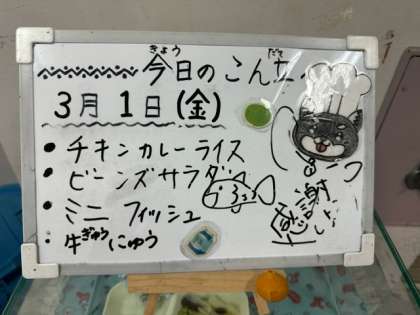 今日のこんだて
きょう
3月1日(金)
• チキンカレーライス
• ビーンズサラダ
• ミニフィッシュ
• 牛にゅう
ぎゅう